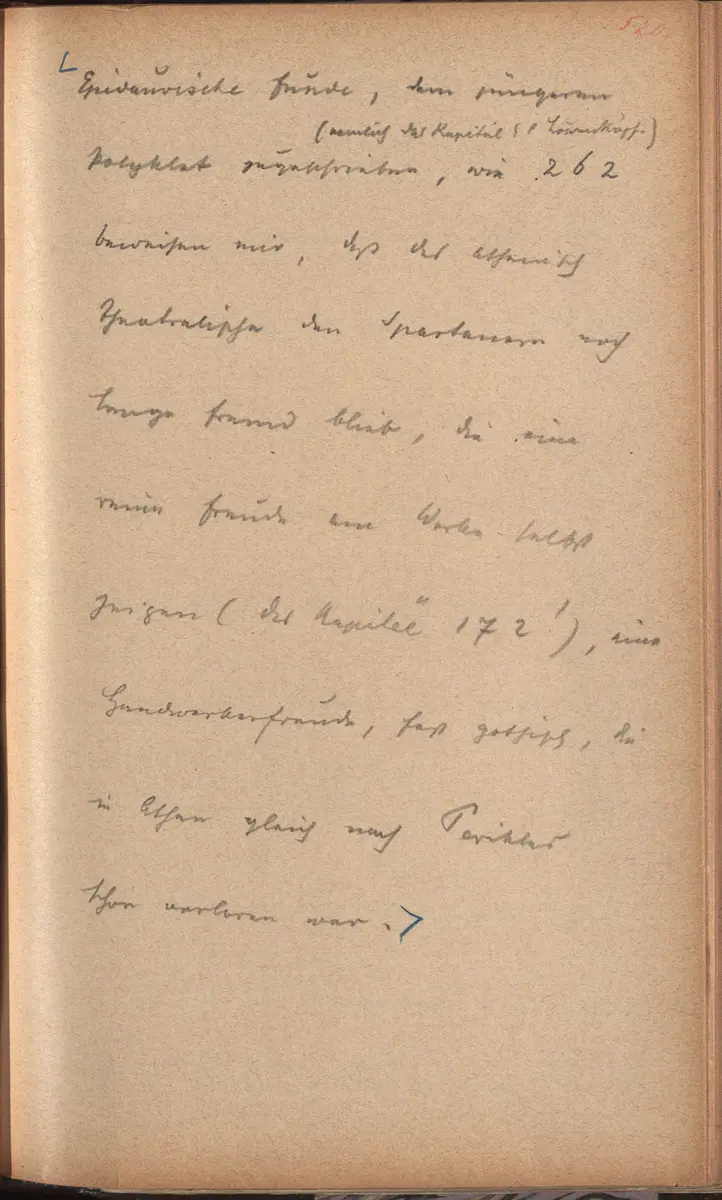 520
Epidaurische Funde, dem jüngeren
(nemlich das Kapitäl & Löwenköpfe)
Polyklet zugeschrieben, wie 262
beweisen mir, daß das athenisch
Theatralische den Spartanern noch
lange fremd blieb, die eine
reine Freude am Werke selbst
zeigen (das Kapitäl 172!), eine
Handwerkerfreude, fast gothisch, die
in Athen gleich nach Perikles
schon verloren war.